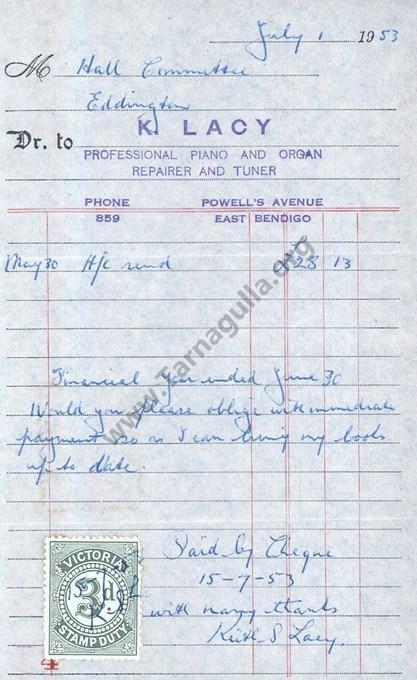 July 1 1953
M Hall Committee
Eddington
Dr. to K. LACY
PROFESSIONAL PIANO AND ORGAN
REPAIRER AND TUNER
PHONE POWELL'S AVENUE
859 EAST BENDIGO
May 30 A/c rend £28 13
Financial Year ended June 30
Would you please oblige with immediate
payment so as I can bring my books
up to date.
Paid by Cheque
15-7-53
with many thanks
Keith S Lacy.
VICTORIA
3d.
STAMP DUTY
www.tarnagulla.org